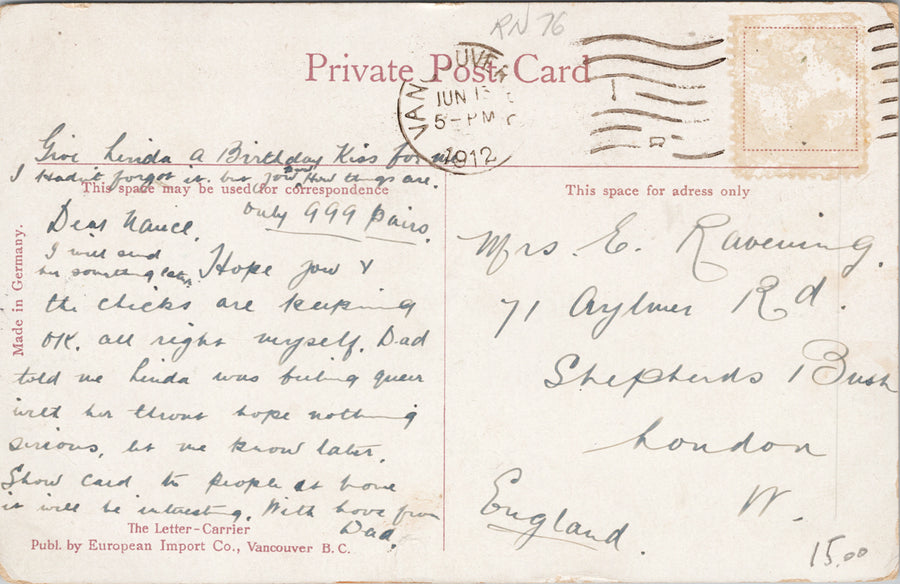 RN 76
Private Post Card
VANCOUVER
JUN 13
5-PM
1912
Give Linda a Birthday Kiss for me
I Hadn't forgot it. but you know How things are.
This space may be used for correspondence
only 999 pairs.
Dear Nance.
I will send
her something later.
Hope you &
the chicks are keeping
OK. all right myself. Dad
told me Linda was feeling queer
with her throat hope nothing
serious, let me know later.
Show card to people at home
it will be interesting. With Love from
Dad.
Made in Germany.
The Letter-Carrier
Publ. by European Import Co., Vancouver B. C.
This space for adress only
Mrs. E. Ravening.
71 Aylmer Rd.
Shepherds Bush
London
W.
England.
15.00